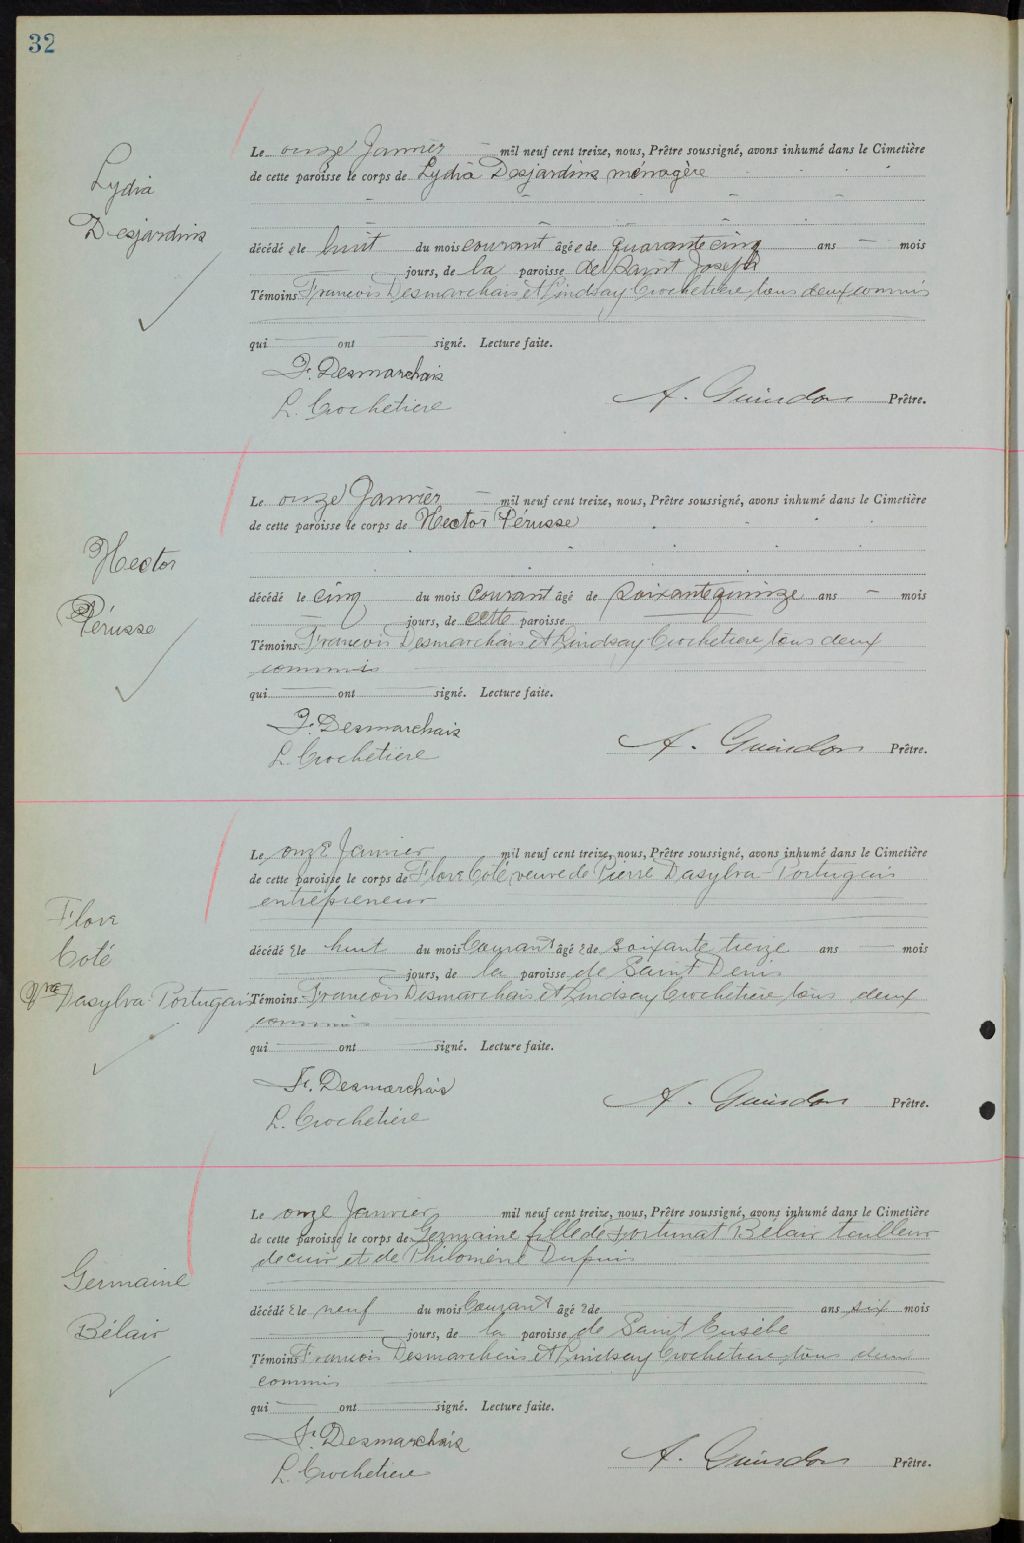 32
Lydia
Desjardins
Le onze Janvier — mil neuf cent treize, nous, Prêtre soussigné, avons inhumé dans le Cimetière
de cette paroisse le corps de Lydia Desjardins ménagère
décédé e le huit du mois courant âgée de quarante cinq ans — mois
jours, de la paroisse de Saint Joseph
Témoins Francois Desmarchais et Lindsay Crochetière tous deux commis
qui — ont — signé. Lecture faite.
F. Desmarchais
L. Crochetière A. Guindon Prêtre.
Hector
Pérusse
Le onze Janvier — mil neuf cent treize, nous, Prêtre soussigné, avons inhumé dans le Cimetière
de cette paroisse le corps de Hector Pérusse
décédé le cinq du mois Courant âgé de soixante quinze ans — mois
jours, de cette paroisse
Témoins Francois Desmarchais et Lindsay Crochetiere tous deux
commis
qui — ont — signé. Lecture faite.
F. Desmarchais
L. Crochetière A. Guindon Prêtre.
Flore
Coté
Vve Dasylva-Portugais
Le onze Janvier mil neuf cent treize, nous, Prêtre soussigné, avons inhumé dans le Cimetière
de cette paroisse le corps de Flore Coté, veuve de Pierre Dasylva-Portugais
entrepreneur
décédé e le huit du mois Courant âgé e de soixante treize ans — mois
jours, de la paroisse de Saint Denis
Témoins Francois Desmarchais et Lindsay Crochetière tous deux
commis
qui — ont — signé. Lecture faite.
F. Desmarchais
L. Crochetière A. Guindon Prêtre.
Germaine
Bélair
Le onze Janvier mil neuf cent treize, nous, Prêtre soussigné, avons inhumé dans le Cimetière
de cette paroisse le corps de Germaine fille de Fortunat Bélair tailleur
de cuir et de Philomène Dupuis
décédé e le neuf du mois Courant âgé e de ans six mois
jours, de la paroisse de Saint Eusèbe
Témoins Francois Desmarchais et Lindsay Crochetiere tous deux
commis
qui — ont — signé. Lecture faite.
F. Desmarchais
L. Crochetiere A. Guindon Prêtre.